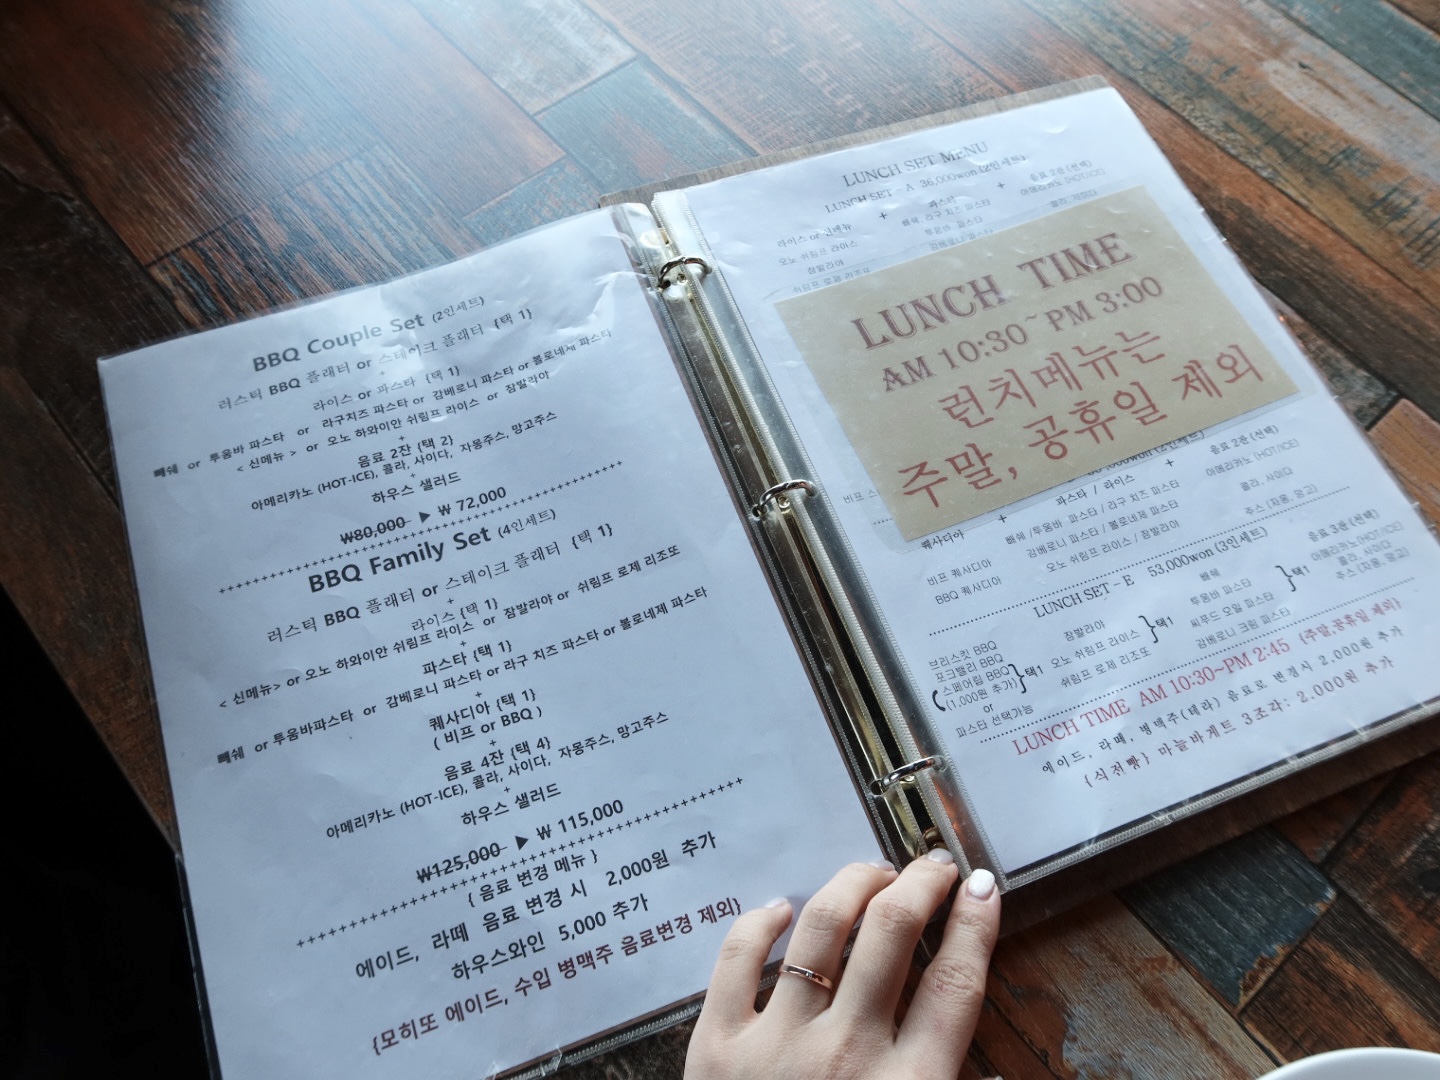 BBQ Couple Set (2인세트)
러스틱 BBQ 플래터 or 스테이크 플래터 {택 1}
+
라이스 or 파스타 {택 1}
빼쉐 or 투움바 파스타 or 라구치즈 파스타 or 감베로니 파스타 or 볼로네제 파스타
< 신메뉴 > or 오노 하와이안 쉬림프 라이스 or 잠발라야
+
음료 2잔 {택 2}
아메리카노 (HOT-ICE), 콜라, 사이다, 자몽주스, 망고주스
+
하우스 샐러드
₩80,000 ▶ ₩ 72,000
BBQ Family Set (4인세트)
러스틱 BBQ 플래터 or 스테이크 플래터 {택 1}
+
라이스 {택 1}
< 신메뉴> or 오노 하와이안 쉬림프 라이스 or 잠발라야 or 쉬림프 로제 리조또
+
파스타 {택 1}
빼쉐 or 투움바파스타 or 감베로니 파스타 or 라구 치즈 파스타 or 볼로네제 파스타
+
퀘사디아 {택 1}
( 비프 or BBQ )
+
음료 4잔 {택 4}
아메리카노 (HOT-ICE), 콜라, 사이다, 자몽주스, 망고주스
+
하우스 샐러드
₩125,000 ▶ ₩ 115,000
{ 음료 변경 메뉴 }
에이드, 라떼 음료 변경 시 2,000원 추가
하우스와인 5,000 추가
{모히또 에이드, 수입 병맥주 음료변경 제외}
LUNCH SET MENU
LUNCH SET - A 36,000won (2인세트)
라이스 or 신메뉴 + 파스타 + 음료 2잔 (선택)
오노 쉬림프 라이스 빼쉐, 라구 치즈 파스타 아메리카노 (HOT/ICE)
잠발라야 투움바 파스타
쉬림프 로제 리조또 감베로니 파스타
LUNCH TIME
AM 10:30~PM 3:00
런치메뉴는
주말, 공휴일 제외
퀘사디아 + 파스타 / 라이스 + 음료 2잔 (선택)
비프 퀘사디아 빼쉐 /투움바 파스타 / 라구 치즈 파스타 아메리카노 (HOT/ICE)
BBQ 퀘사디아 감베로니 파스타 / 볼로네제 파스타 콜라, 사이다
오노 쉬림프 라이스 / 잠발라야 주스 (자몽, 망고)
LUNCH SET - E 53,000won (3인세트)
브리스킷 BBQ 잠발라야 빼쉐 음료 3잔 (선택)
포크밸리 BBQ 오노 쉬림프 라이스 }택1 투움바 파스타 }택1 아메리카노(HOT/ICE)
스페어립 BBQ }택1 쉬림프 로제 리조또 씨푸드 오일 파스타 콜라, 사이다
(1,000원 추가) 감베로니 크림 파스타 주스 (자몽, 망고)
or
파스타 선택가능
LUNCH TIME AM 10:30~PM 2:45 {주말,공휴일 제외}
에이드, 라떼, 병맥주(테라) 음료로 변경시 2,000원 추가
{식전빵} 마늘바게트 3조각: 2,000원 추가